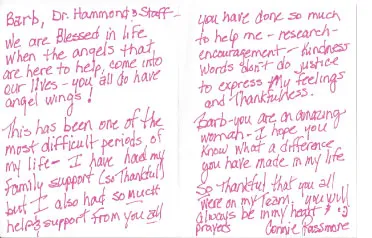 Barb, Dr. Hammond & Staff -
We are Blessed in life
when the angels that
are here to help, come into
our lives - you all do have
angel wings!
This has been one of the
most difficult periods of
my life - I have had my
family support (so Thankful)
but I also had so much
help & support from you all
you have done so much
to help me - research -
encouragement - kindness
words don't do justice
to express my feelings
and Thankfulness.
Barb - you are an amazing
woman - I hope you
know what a difference
you have made in my life
So Thankful that you all
were on my Team. you will
always be in my heart &
prayers Connie Passmore